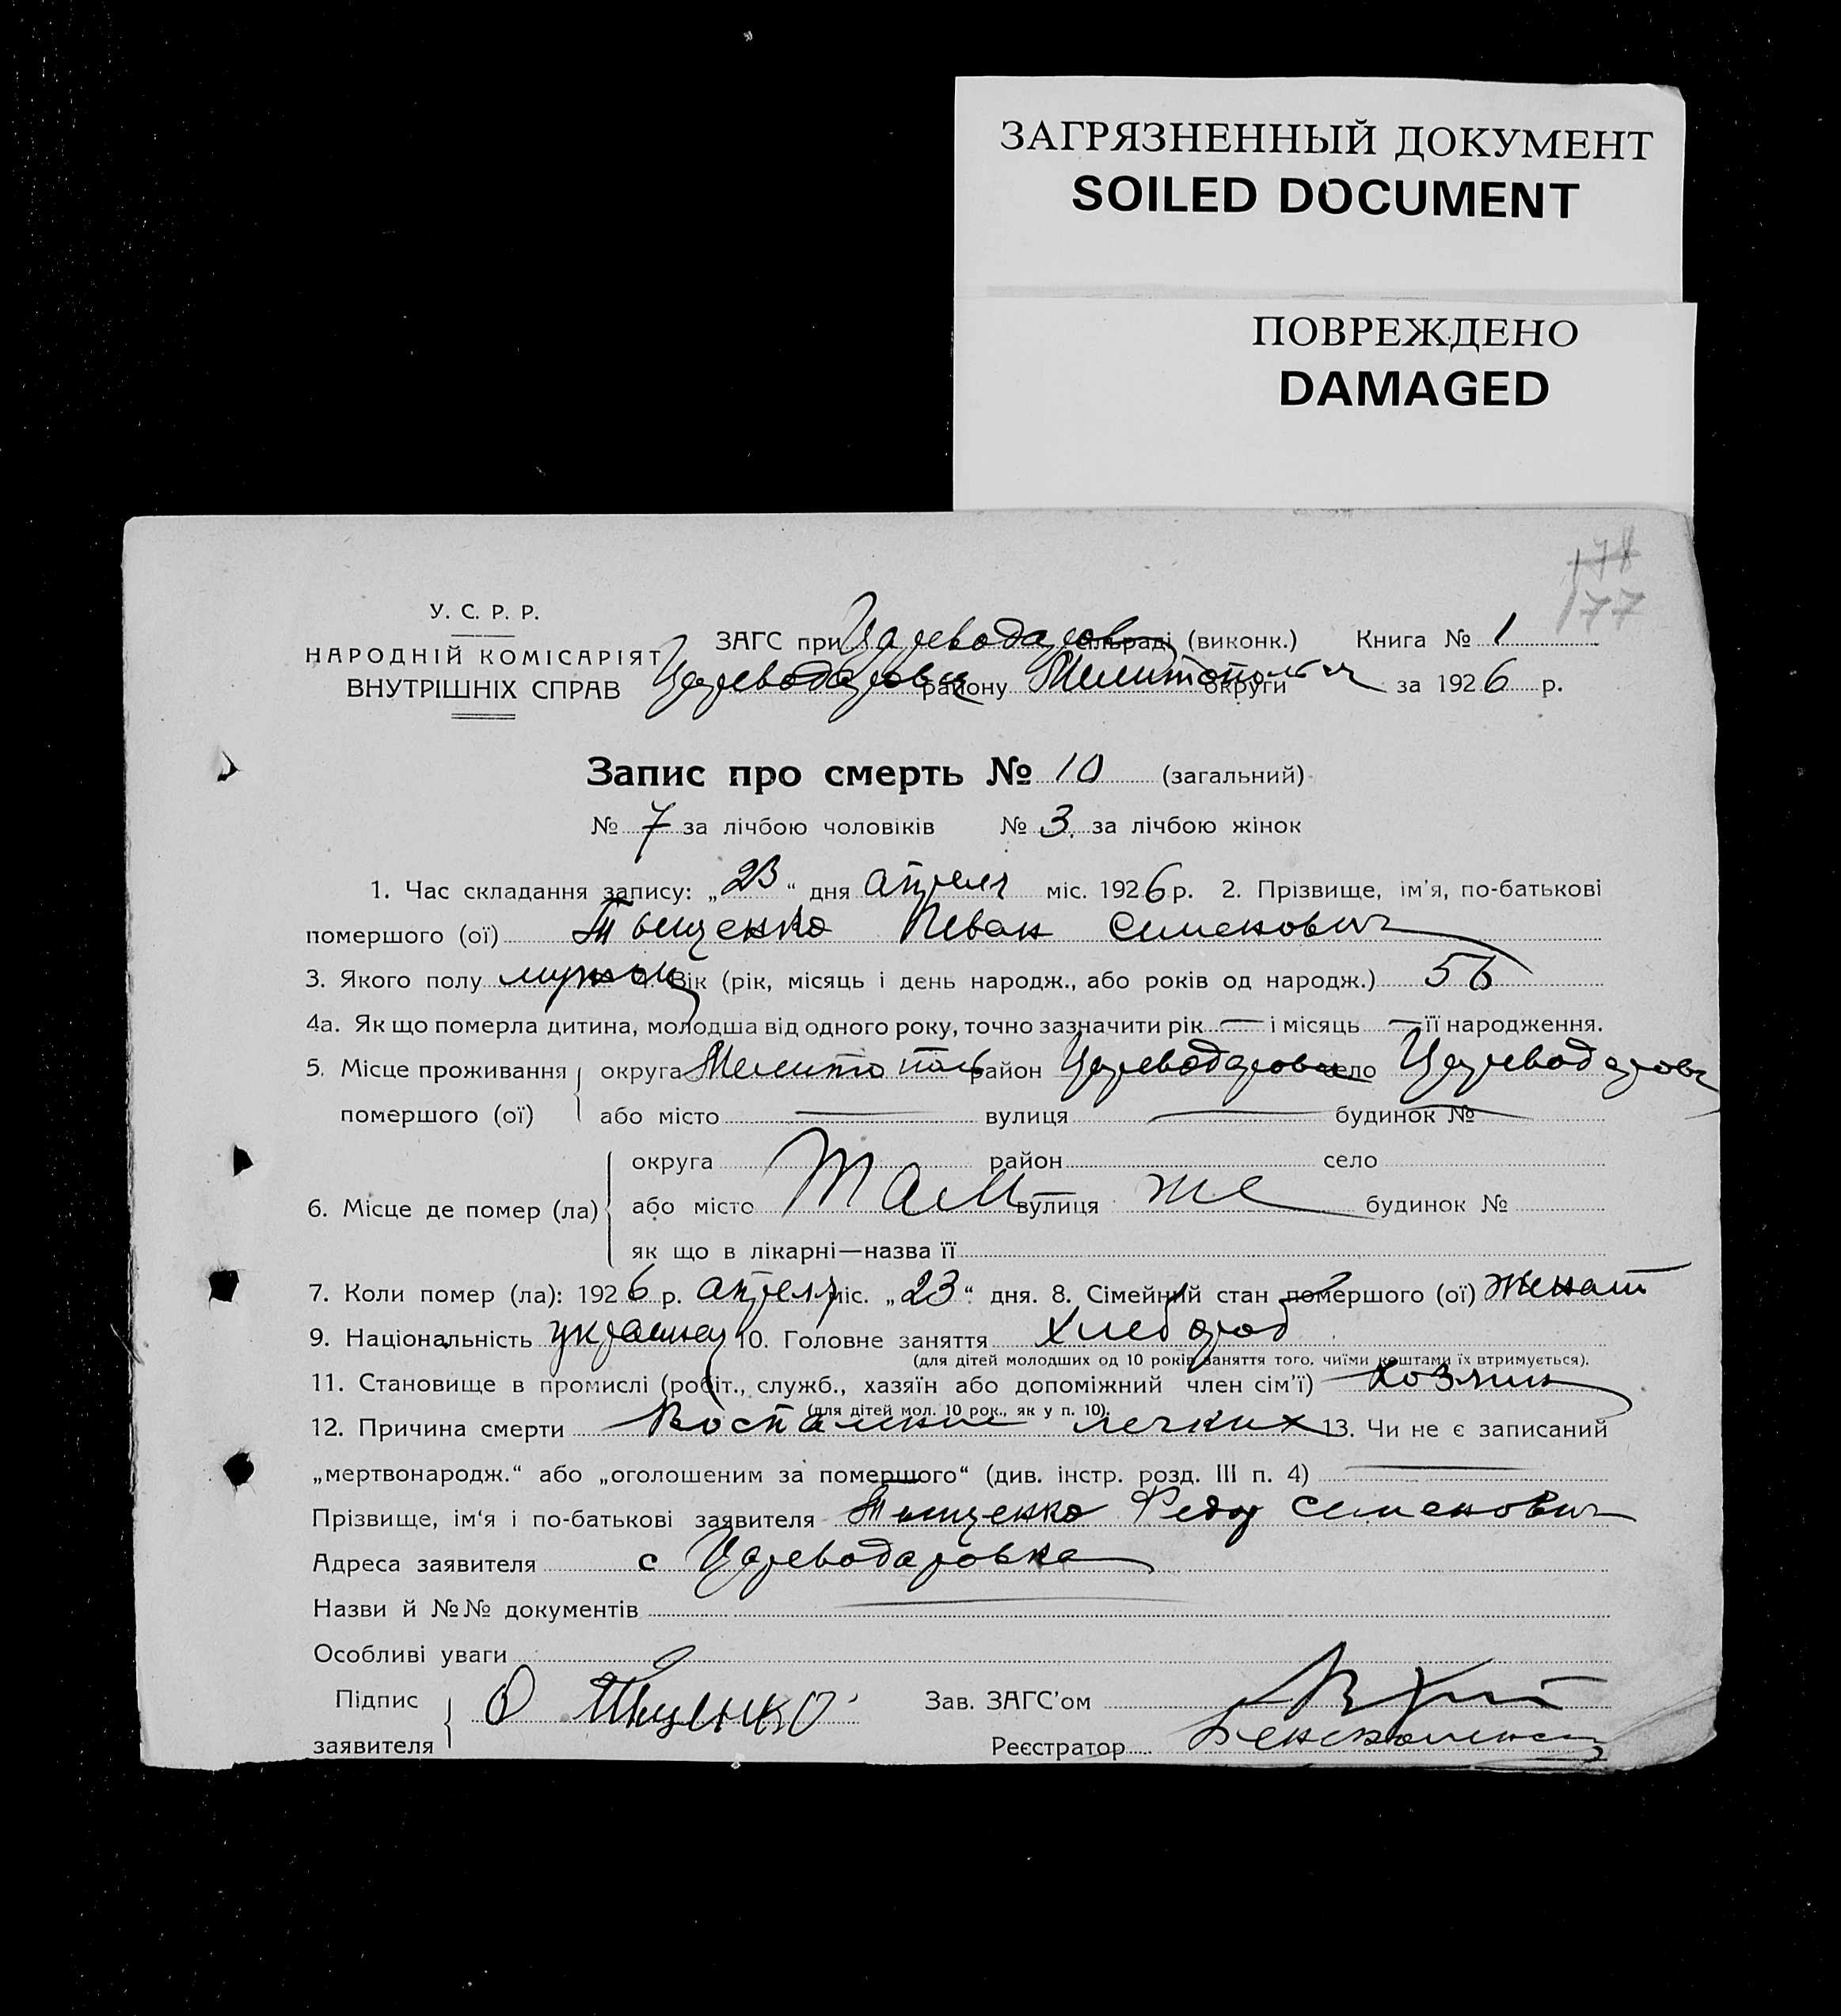 ЗАГРЯЗНЕННЫЙ ДОКУМЕНТ
SOILED DOCUMENT
ПОВРЕЖДЕНО
DAMAGED
178
177
У. С. Р. Р.
НАРОДНІЙ КОМІСАРІЯТ
ВНУТРІШНІХ СПРАВ
ЗАГС при Цареводаров сільраді (виконк.) Книга № 1
Цареводаровск району Мелитопольск округи за 1926 р.
Запис про смерть № 10 (загальний)
№ 7 за лічбою чоловіків № 3. за лічбою жінок
1. Час складання запису: „23“ дня апреля міс. 1926 р. 2. Прізвище, ім'я, по-батькові
помершого (ої) Тыщенко Иван Семенович
3. Якого полу мужск 4. Вік (рік, місяць і день народж., або років од народж.) 56
4а. Як що померла дитина, молодша від одного року, точно зазначити рік — і місяць — її народження.
5. Місце проживання округа Мелитополь район Цареводаровск село Цареводаровк
помершого (ої) або місто — вулиця — будинок № —
округа район село
6. Місце де помер (ла) або місто Там вулиця же будинок №
як що в лікарні—назва її
7. Коли помер (ла): 1926 р. апреля міс. „23“ дня. 8. Сімейний стан помершого (ої) Женат
9. Національність украинец 10. Головне заняття Хлебороб
(для дітей молодших од 10 років заняття того, чиїми коштами їх втримується).
11. Становище в промислі (робіт., служб., хазяїн або допоміжний член сім'ї) Хозяин
(для дітей мол. 10 рок., як у п. 10).
12. Причина смерти Воспаление легких 13. Чи не є записаний
„мертвонародж.“ або „оголошеним за помершого“ (див. інстр. розд. III п. 4) —
Прізвище, ім'я і по-батькові заявителя Тыщенко Федор Семенович
Адреса заявителя с Цареводаровка
Назви й №№ документів —
Особливі уваги
Підпис
заявителя Тыщенко
Зав. ЗАГС'ом
Реєстратор